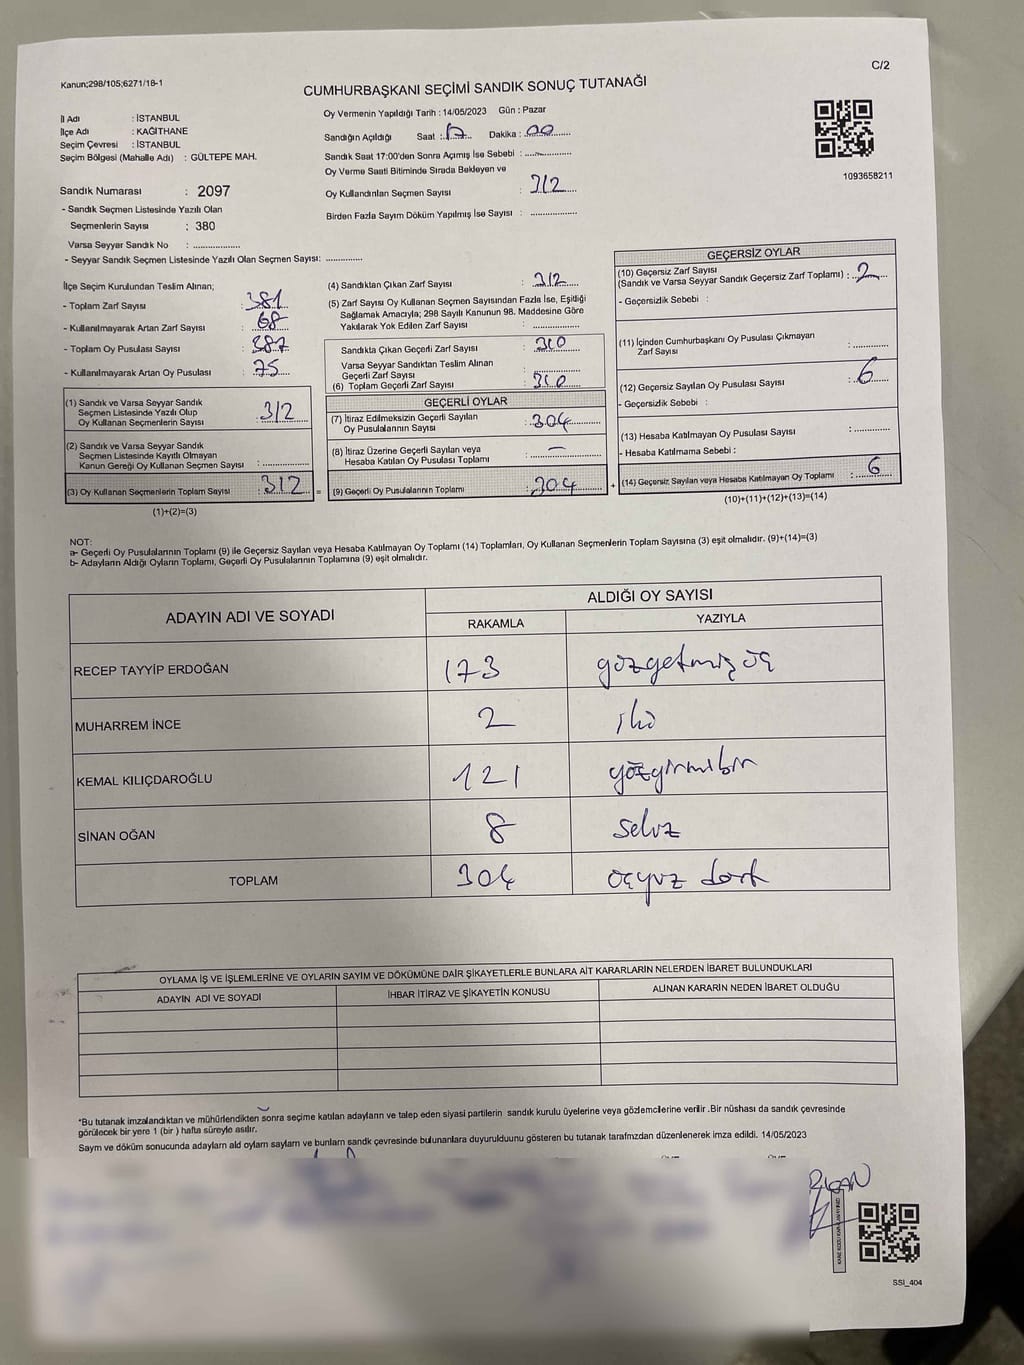 Kanun;298/105;6271/18-1
C/2
CUMHURBAŞKANI SEÇİMİ SANDIK SONUÇ TUTANAĞI
İl Adı : İSTANBUL
İlçe Adı : KAĞITHANE
Seçim Çevresi : İSTANBUL
Seçim Bölgesi (Mahalle Adı) : GÜLTEPE MAH.
Sandık Numarası : 2097
- Sandık Seçmen Listesinde Yazılı Olan
Seçmenlerin Sayısı : 380
Varsa Seyyar Sandık No : ...................
- Seyyar Sandık Seçmen Listesinde Yazılı Olan Seçmen Sayısı: ..............
Oy Vermenin Yapıldığı Tarih : 14/05/2023 Gün : Pazar
Sandığın Açıldığı Saat : 17 Dakika : 00
Sandık Saat 17:00'den Sonra Açımış İse Sebebi : ..............
Oy Verme Saati Bitiminde Sırada Bekleyen ve
Oy Kullandırılan Seçmen Sayısı : 312
Birden Fazla Sayım Döküm Yapılmış İse Sayısı : ..............
1093658211
İlçe Seçim Kurulundan Teslim Alınan;
- Toplam Zarf Sayısı : 381
- Kullanılmayarak Artan Zarf Sayısı : 68
- Toplam Oy Pusulası Sayısı : 387
- Kullanılmayarak Artan Oy Pusulası : 75
(1) Sandık ve Varsa Seyyar Sandık
Seçmen Listesinde Yazılı Olup
Oy Kullanan Seçmenlerin Sayısı : 312
(2) Sandık ve Varsa Seyyar Sandık
Seçmen Listesinde Kayıtlı Olmayan
Kanun Gereği Oy Kullanan Seçmen Sayısı : ..............
(3) Oy Kullanan Seçmenlerin Toplam Sayısı : 312 =
(1)+(2)=(3)
(4) Sandıktan Çıkan Zarf Sayısı : 312
(5) Zarf Sayısı Oy Kullanan Seçmen Sayısından Fazla İse, Eşitliği
Sağlamak Amacıyla; 298 Sayılı Kanunun 98. Maddesine Göre
Yakılarak Yok Edilen Zarf Sayısı : ..............
Sandıkta Çıkan Geçerli Zarf Sayısı : 310
Varsa Seyyar Sandıktan Teslim Alınan
Geçerli Zarf Sayısı : ..............
(6) Toplam Geçerli Zarf Sayısı : 310
GEÇERLİ OYLAR
(7) İtiraz Edilmeksizin Geçerli Sayılan
Oy Pusulalarının Sayısı : 304
(8) İtiraz Üzerine Geçerli Sayılan veya
Hesaba Katılan Oy Pusulası Toplamı : —
(9) Geçerli Oy Pusulalarının Toplamı : 304 +
GEÇERSİZ OYLAR
(10) Geçersiz Zarf Sayısı
(Sandık ve Varsa Seyyar Sandık Geçersiz Zarf Toplamı) : 2
- Geçersizlik Sebebi :
(11) İçinden Cumhurbaşkanı Oy Pusulası Çıkmayan
Zarf Sayısı : ..............
(12) Geçersiz Sayılan Oy Pusulası Sayısı : 6
- Geçersizlik Sebebi :
(13) Hesaba Katılmayan Oy Pusulası Sayısı : ..............
- Hesaba Katılmama Sebebi :
(14) Geçersiz Sayılan veya Hesaba Katılmayan Oy Toplamı : 6
(10)+(11)+(12)+(13)=(14)
NOT:
a- Geçerli Oy Pusulalarının Toplamı (9) ile Geçersiz Sayılan veya Hesaba Katılmayan Oy Toplamı (14) Toplamları, Oy Kullanan Seçmenlerin Toplam Sayısına (3) eşit olmalıdır. (9)+(14)=(3)
b- Adayların Aldığı Oyların Toplamı, Geçerli Oy Pusulalarının Toplamına (9) eşit olmalıdır.
ADAYIN ADI VE SOYADI
ALDIĞI OY SAYISI
RAKAMLA YAZIYLA
RECEP TAYYİP ERDOĞAN 173 yüzyetmiş üç
MUHARREM İNCE 2 iki
KEMAL KILIÇDAROĞLU 121 yüzyirmibir
SİNAN OĞAN 8 sekiz
TOPLAM 304 üçyüz dört
OYLAMA İŞ VE İŞLEMLERİNE VE OYLARIN SAYIM VE DÖKÜMÜNE DAİR ŞİKAYETLERLE BUNLARA AİT KARARLARIN NELERDEN İBARET BULUNDUKLARI
ADAYIN ADI VE SOYADI İHBAR İTİRAZ VE ŞİKAYETİN KONUSU ALINAN KARARIN NEDEN İBARET OLDUĞU
*Bu tutanak imzalandıktan ve mühürlendikten sonra seçime katılan adayların ve talep eden siyasi partilerin sandık kurulu üyelerine veya gözlemcilerine verilir .Bir nüshası da sandık çevresinde
görülecek bir yere 1 (bir ) hafta süreyle asılır.
Saym ve döküm sonucunda adaylarn ald oylarn saylarn ve bunlarn sandk çevresinde bulunanlara duyurulduunu gösteren bu tutanak tarafmzdan düzenlenerek imza edildi. 14/05/2023
SSI_404